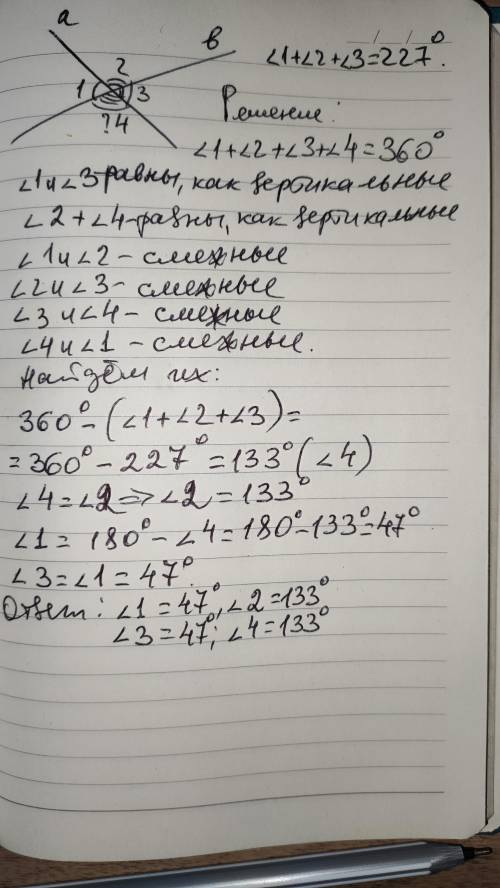 a
в
∠1+∠2+∠3=227°.
2
1 3
?4
Решение:
∠1+∠2+∠3+∠4=360°
∠1и∠3-равны, как вертикальные
∠2+∠4-равны, как вертикальные
∠1и∠2- смежные
∠2и∠3- смежные
∠3и∠4- смежные
∠4и∠1- смежные.
Найдём их:
360°-(∠1+∠2+∠3)=
=360°-227°=133°(∠4)
∠4=∠2⇒∠2=133°
∠1= 180°-∠4=180°-133°=47°
∠3=∠1=47°.
Ответ: ∠1=47°,∠2=133°
∠3=47°; ∠4=133°